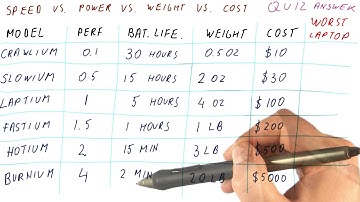 SPEED VS. POWER VS. WEIGHT VS. COST QUIZ ANSWER
MODEL PERF BAT. LIFE. WEIGHT COST WORST LAPTOP
CRAWLIUM 0.1 30 HOURS 0.5 OZ $10
SLOWIUM 0.5 15 HOURS 2 OZ $30
LAPTIUM 1 5 HOURS 4 OZ $100
FASTIUM 1.5 1 HOURS 1 LB $200
HOTIUM 2 15 MIN 3 LB $500
BURNIUM 4 2 MIN 20 LB $5000